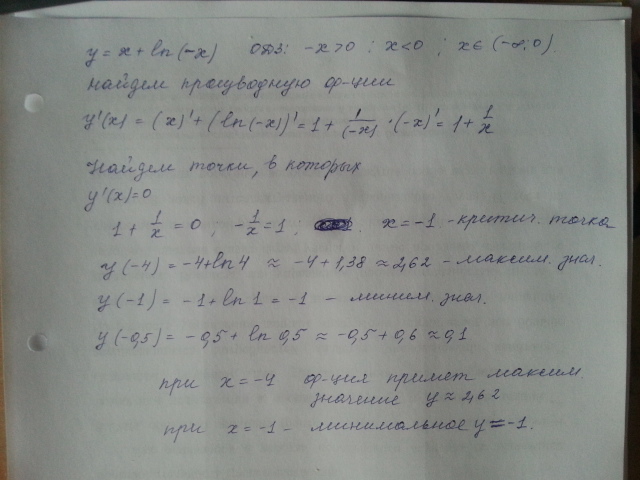 y = x + ln(-x) ОДЗ: -x>0 ; x<0 ; x∈(-∞;0)
Найдем производную ф-ции
y'(x) = (x)' + (ln(-x))' = 1 + 1/(-x) · (-x)' = 1 + 1/x
Найдем точки, в которых
y'(x)=0
1 + 1/x = 0 ; -1/x = 1 ; x = -1 - критич. точка
y(-4) = -4+ln4 ≈ -4+1,38 ≈ 2,62 - максим. знач.
y(-1) = -1+ln1 = -1 - миним. знач.
y(-0,5) = -0,5 + ln 0,5 ≈ -0,5 + 0,6 ≈ 0,1
при x = -4 ф-ция примет максим.
значение y ≈ 2,62
при x = -1 - минимальное y = -1.